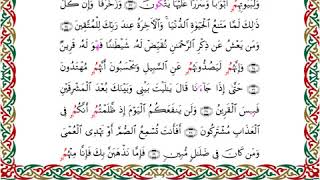 وَلِبُيُوتِهِمْ أَبْوَابًا وَسُرُرًا عَلَيْهَا يَتَّكِـُٔونَ ۝ وَزُخْرُفًا ۚ وَإِن كُلُّ
ذَٰلِكَ لَمَّا مَتَـٰعُ ٱلْحَيَوٰةِ ٱلدُّنْيَا ۚ وَٱلْـَٔاخِرَةُ عِندَ رَبِّكَ لِلْمُتَّقِينَ ۝
وَمَن يَعْشُ عَن ذِكْرِ ٱلرَّحْمَـٰنِ نُقَيِّضْ لَهُۥ شَيْطَـٰنًا فَهُوَ لَهُۥ قَرِينٌ
۝ وَإِنَّهُمْ لَيَصُدُّونَهُمْ عَنِ ٱلسَّبِيلِ وَيَحْسَبُونَ أَنَّهُم مُّهْتَدُونَ
۝ حَتَّىٰٓ إِذَا جَآءَٰنَا قَالَ يَـٰلَيْتَ بَيْنِى وَبَيْنَكَ بُعْدَ ٱلْمَشْرِقَيْنِ
فَبِئْسَ ٱلْقَرِينُ ۝ وَلَن يَنفَعَكُمُ ٱلْيَوْمَ إِذ ظَّلَمْتُمْ أَنَّكُمْ فِى
ٱلْعَذَابِ مُشْتَرِكُونَ ۝ أَفَأَنتَ تُسْمِعُ ٱلصُّمَّ أَوْ تَهْدِى ٱلْعُمْىَ
وَمَن كَانَ فِى ضَلَـٰلٍ مُّبِينٍ ۝ فَإِمَّا نَذْهَبَنَّ بِكَ فَإِنَّا مِنْهُم